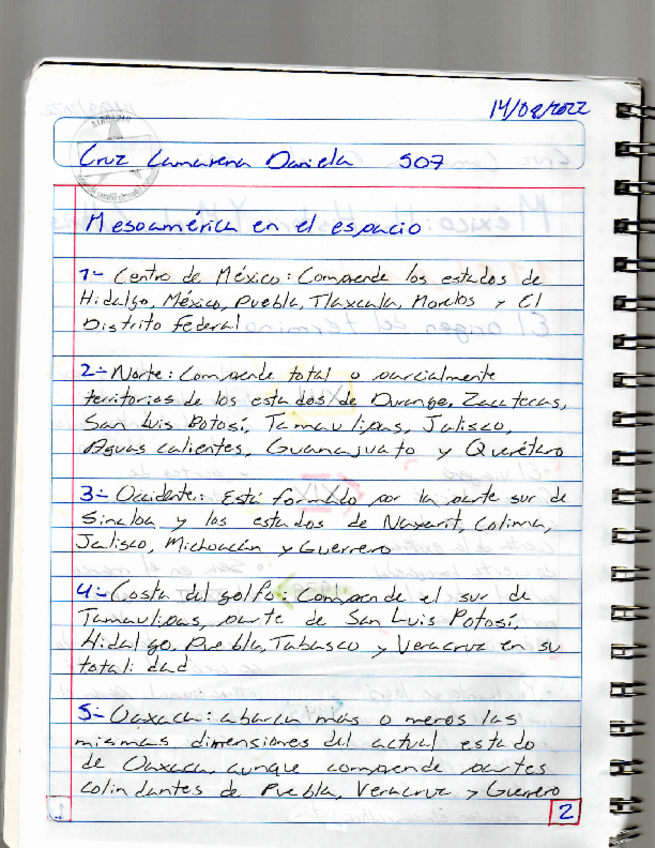 14/08/2022
Cruz Camarena Daniela 507
Mesoamérica en el espacio
1- Centro de México: Comprende los estados de
Hidalgo, México, Puebla, Tlaxcala, Morelos y El
Distrito federal
2- Norte: Comprende total o parcialmente
territorios de los estados de Durango, Zacatecas,
San Luis Potosí, Tamaulipas, Jalisco,
Aguas calientes, Guanajuato y Querétaro
3- Occidente: Está formado por la parte sur de
Sinaloa y los estados de Nayarit, Colima,
Jalisco, Michoacán y Guerrero
4- Costa del golfo: Comprende el sur de
Tamaulipas, parte de San Luis Potosí,
Hidalgo, Puebla, Tabasco y Veracruz en su
totalidad
5- Oaxaca: abarca más o menos las
mismas dimensiones del actual estado
de Oaxaca, aunque comprende partes
colindantes de Puebla, Veracruz y Guerrero
2